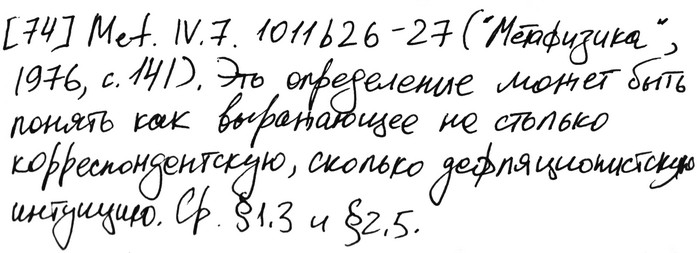 [74] Met. IV.7. 1011b26-27 ("Метафизика",
1976, с. 141). Это определение может быть
понять как выражающее не столько
корреспондентскую, сколько дефляционистскую
интуицию. Ср. §1.3 и §2.5.